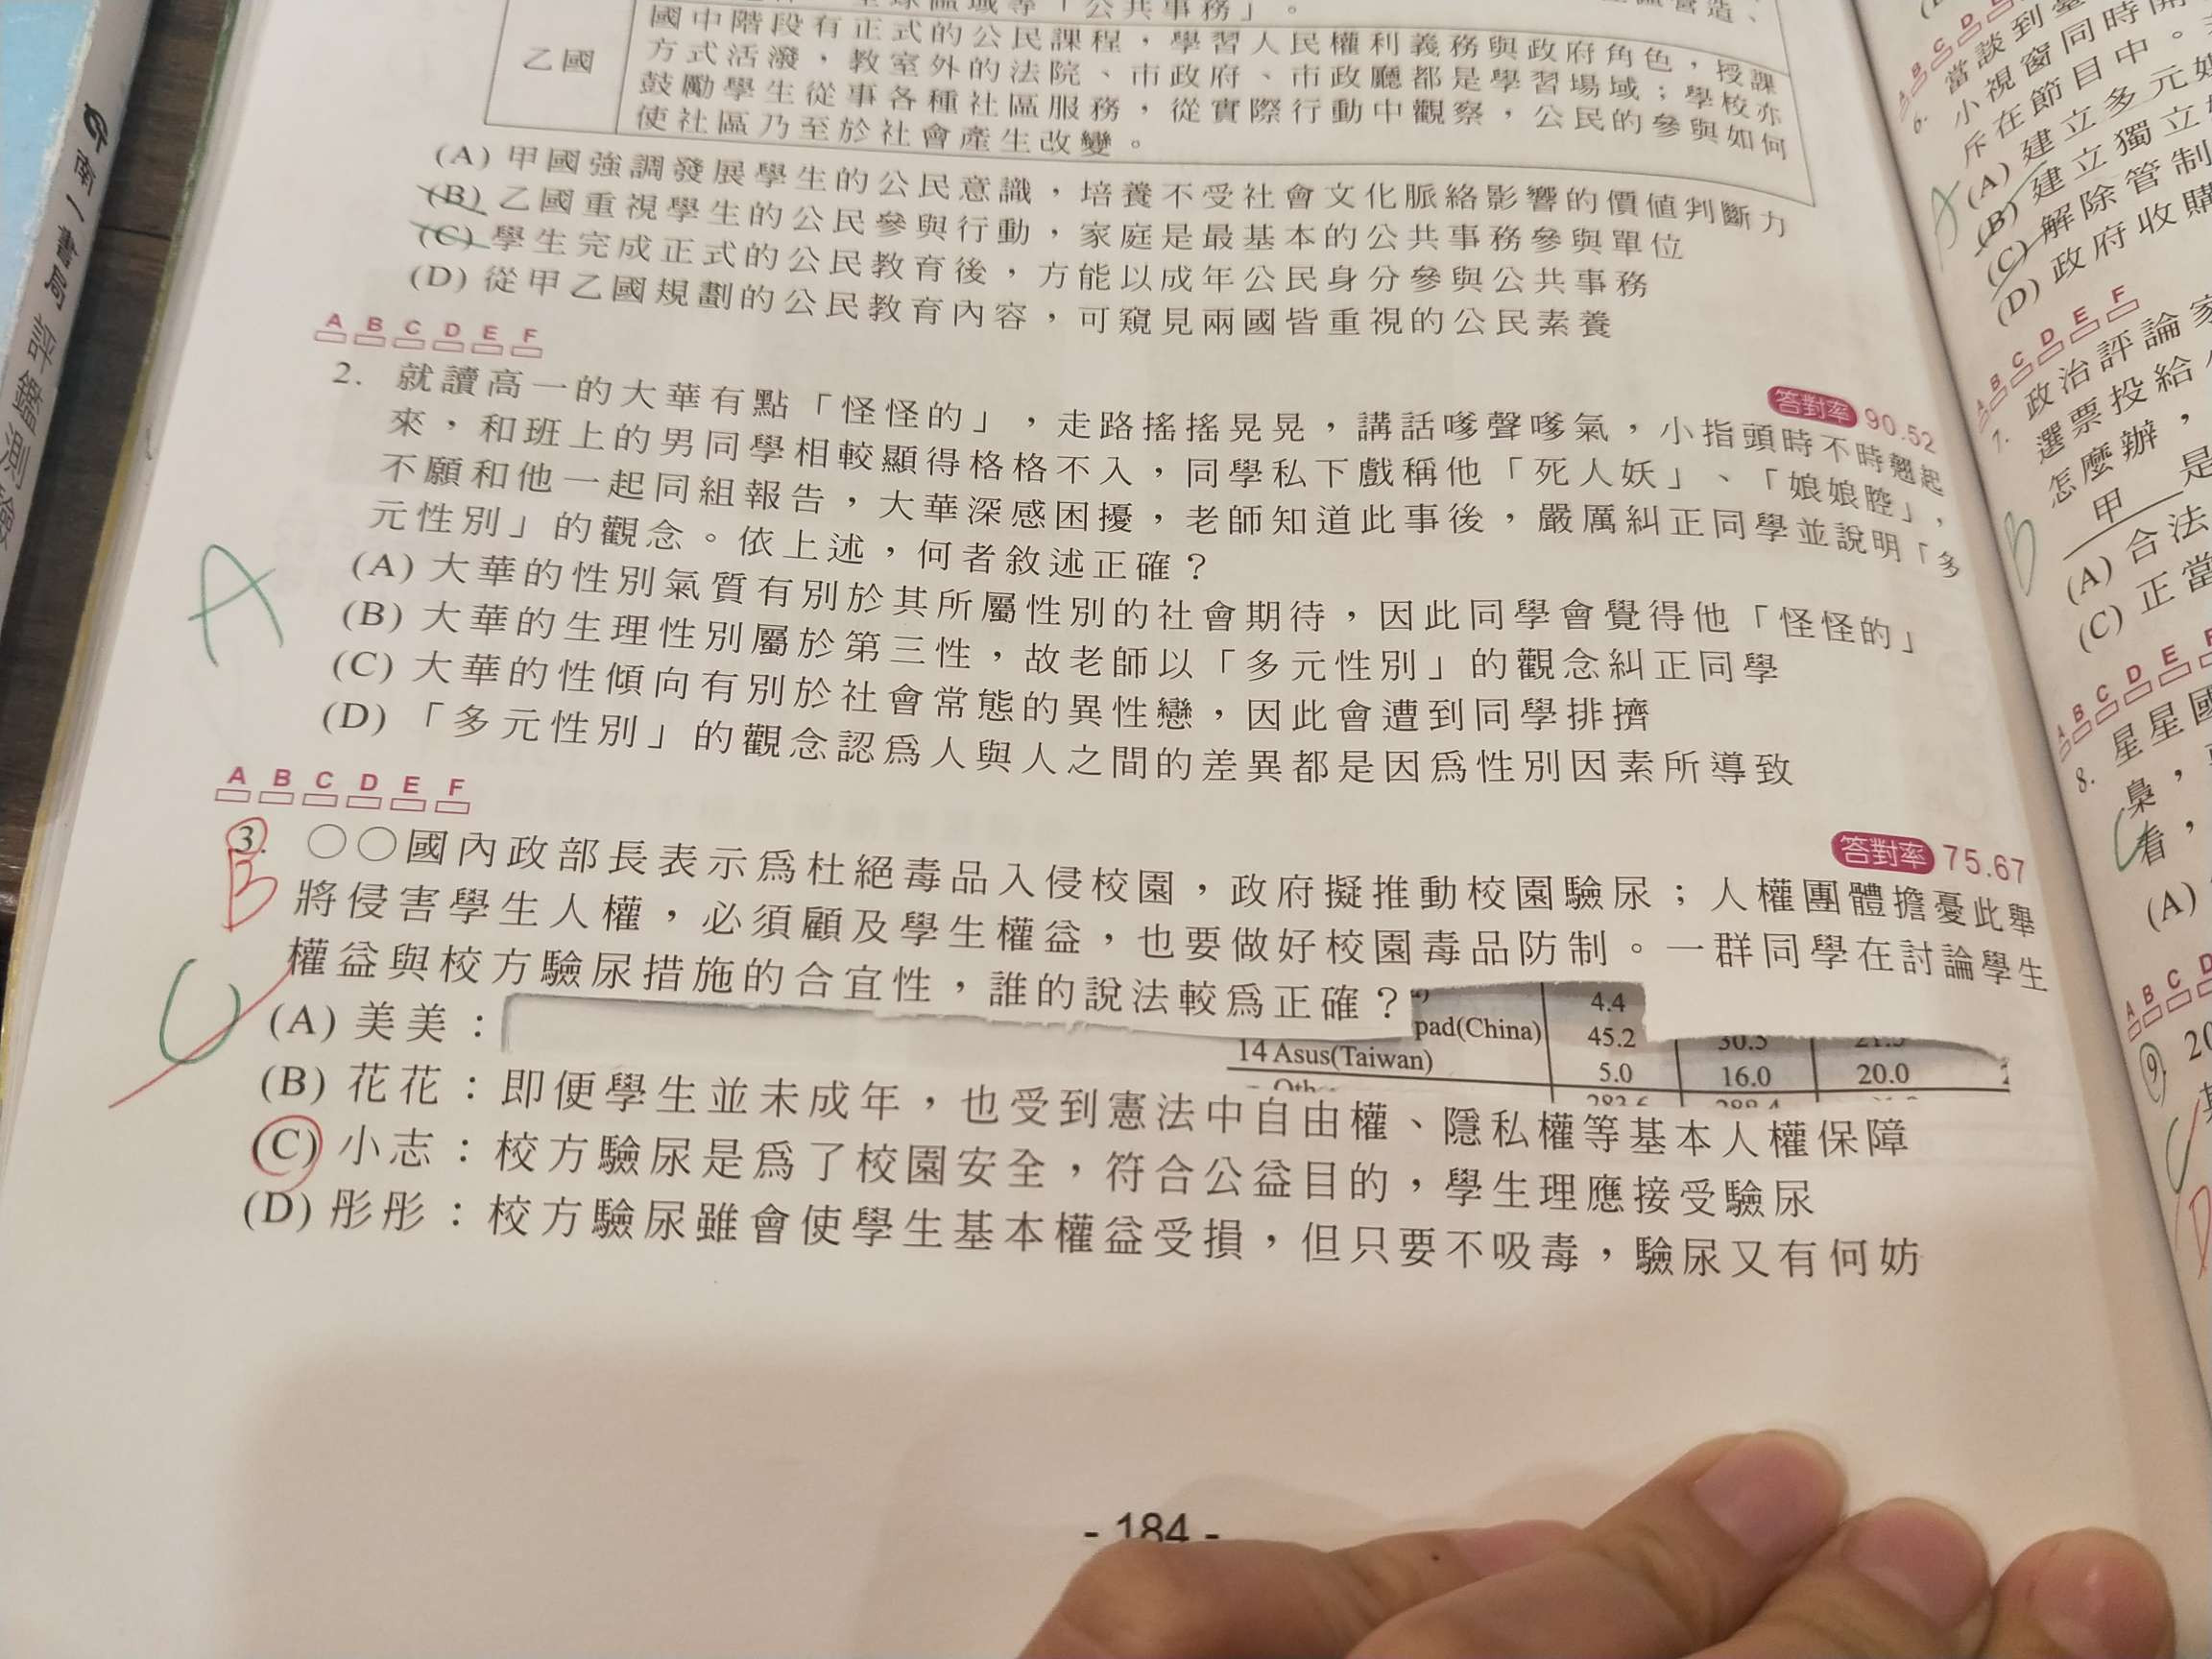 南一書局 評鑑測驗
乙國
國中階段有正式的公民課程，學習人民權利義務與政府角色，授課
方式活潑，教室外的法院、市政府、市政廳都是學習場域；學校亦
鼓勵學生從事各種社區服務，從實際行動中觀察，公民的參與如何
使社區乃至於社會產生改變。
(A) 甲國強調發展學生的公民意識，培養不受社會文化脈絡影響的價值判斷力
(B) 乙國重視學生的公民參與行動，家庭是最基本的公共事務參與單位
(C) 學生完成正式的公民教育後，方能以成年公民身分參與公共事務
(D) 從甲乙國規劃的公民教育內容，可窺見兩國皆重視的公民素養
A B C D E F
答對率 90.52
2. 就讀高一的大華有點「怪怪的」，走路搖搖晃晃，講話嗲聲嗲氣，小指頭時不時翹起
來，和班上的男同學相較顯得格格不入，同學私下戲稱他「死人妖」、「娘娘腔」，
不願和他一起同組報告，大華深感困擾，老師知道此事後，嚴厲糾正同學並說明「多
元性別」的觀念。依上述，何者敘述正確？
A
(A) 大華的性別氣質有別於其所屬性別的社會期待，因此同學會覺得他「怪怪的」
(B) 大華的生理性別屬於第三性，故老師以「多元性別」的觀念糾正同學
(C) 大華的性傾向有別於社會常態的異性戀，因此會遭到同學排擠
(D) 「多元性別」的觀念認為人與人之間的差異都是因為性別因素所導致
A B C D E F
答對率 75.67
3. ○○國內政部長表示為杜絕毒品入侵校園，政府擬推動校園驗尿；人權團體擔憂此舉
B
將侵害學生人權，必須顧及學生權益，也要做好校園毒品防制。一群同學在討論學生
權益與校方驗尿措施的合宜性，誰的說法較為正確？
C
(A) 美美：
4.4
pad(China) 45.2 30.5
14 Asus(Taiwan) 5.0 16.0 20.0
(B) 花花：即便學生並未成年，也受到憲法中自由權、隱私權等基本人權保障
(C) 小志：校方驗尿是為了校園安全，符合公益目的，學生理應接受驗尿
(D) 彤彤：校方驗尿雖會使學生基本權益受損，但只要不吸毒，驗尿又有何妨
- 184 -
6. 當談到臺
小視窗同時開
斥在節目中。
(A) 建立多元媒
(B) 建立獨立
(C) 解除管制
(D) 政府收購
A
A B C D E F
7. 政治評論家
選票投給
怎麼辦，
甲 是
B
(A) 合法
(C) 正當
A B C D E F
8. 星星國
梟，
看，
(A)
A B C D
9. 20